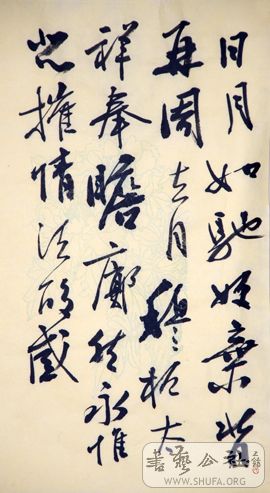 日月如馳嫂棄背
再周去月穆松大
祥奉瞻廓然永惟
悲摧情
書藝公社
WWW.SHUFA.ORG